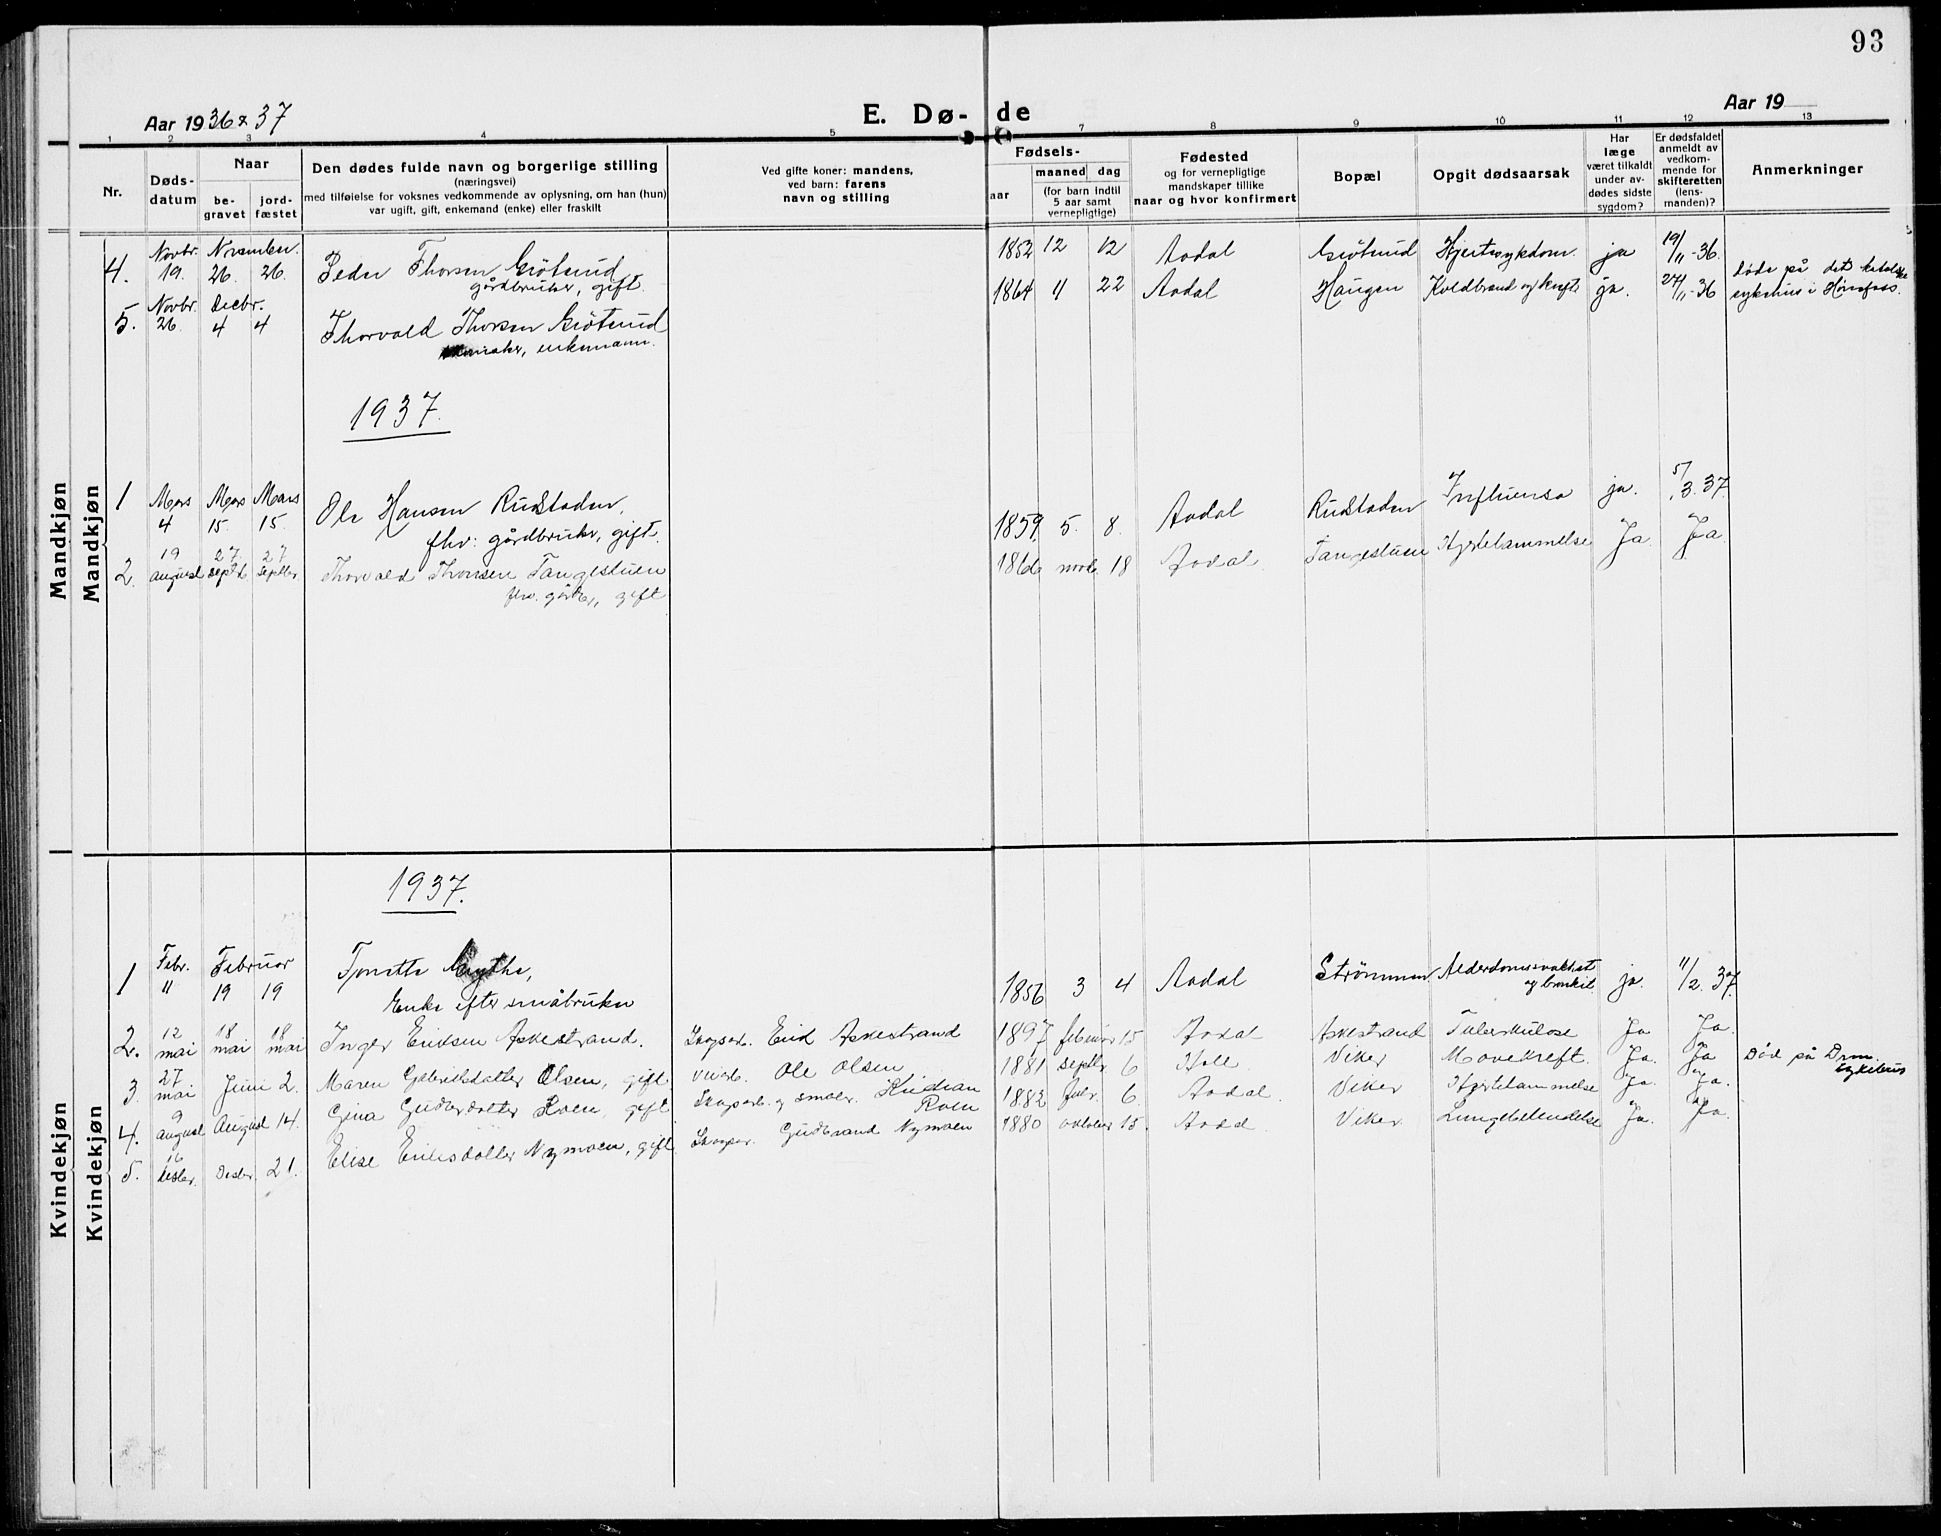 93
Aar 1936 & 37
E. Dø- de
Aar 19
1 2 3 4 5 7 8 9 10 11 12 13
Nr.
Døds-
datum
Naar
be-
gravet
jord-
fæstet
Den dødes fulde navn og borgerlige stilling
(næringsvei)
med tilføielse for voksnes vedkommende av oplysning, om han (hun)
var ugift, gift, enkemand (enke) eller fraskilt
Ved gifte koner: mandens,
ved barn: farens
navn og stilling
Fødsels-
aar
maaned dag
(for barn indtil
5 aar samt
vernepligtige)
Fødested
og for vernepligtige
mandskaper tillike
naar og hvor konfirmert
Bopæl
Opgit dødsaarsak
Har
læge
været tilkaldt
under av-
dødes sidste
sygdom?
Er dødsfaldet
anmeldt av
vedkom-
mende for
skifteretten
(lens-
manden)?
Anmerkninger
Mandkjøn
Mandkjøn
4. Novbr. 19. November 26. 26. Peder Thorsen 1852 12 12 Aadal Hjertesykdom ja 19/11-36.
gårdbruker, gift.
5. Novbr. 26. Decbr. 4 4 Thorvald Thorsen 1864 4 22 Aadal Haugen Koldbrand og ja. 24/11-36 døde på det katolske
sykehus i Hønefoss.
enkemann.
1937.
1 Mars 4 Mars 15. Mars 15. Ole Hansen Rudstaden, 1859 5. 8. Aadal Rudstaden Influensa ja. 5/3. 37.
fhv: gårdbruker, gift.
2. 19 august 27. septb. 27 septbr. Thorvald Thorsen Tangestuen 1866 novb. 18 Aadal Tangestuen Hjertelammelse Ja. Ja.
fhv. gårdbr., gift
Kvindekjøn
Kvindekjøn
1937.
1 Febr. 11 Februar 19 19 Tonette 1856 3 4 Aadal Strømmen Alderdomssvakhet ja. 11/2. 37.
Enke efter småbruker
2. 12 mai 18 mai 18 mai Inger Eriksen Askestrand. Skogsarb. Erik Askestrand 1897 februar 15 Aadal Askestrand Tuberkulose Ja Ja.
3. 27 mai Juni 2. Maren Gabrielsdatter Olsen, gift Ole Olsen 1881 septbr. 6 Hole Viker Mavekreft Ja. Ja Død på Drm.
sykehus
4. 9 august August 14. Gina Gudbr.datter Roen, gift Skogsarb. og småbr. Kristian
Roen 1882 febr. 6 Aadal. Viker Hjertelammelse Ja. Ja.
5. 16 desbr. Desbr. 21. Elise Eriksdatter Nymoen, gift Skogsar. Gudbrand Nymoen 1880 oktober 15. Aadal Viker Lungebetendelse Ja. Ja.